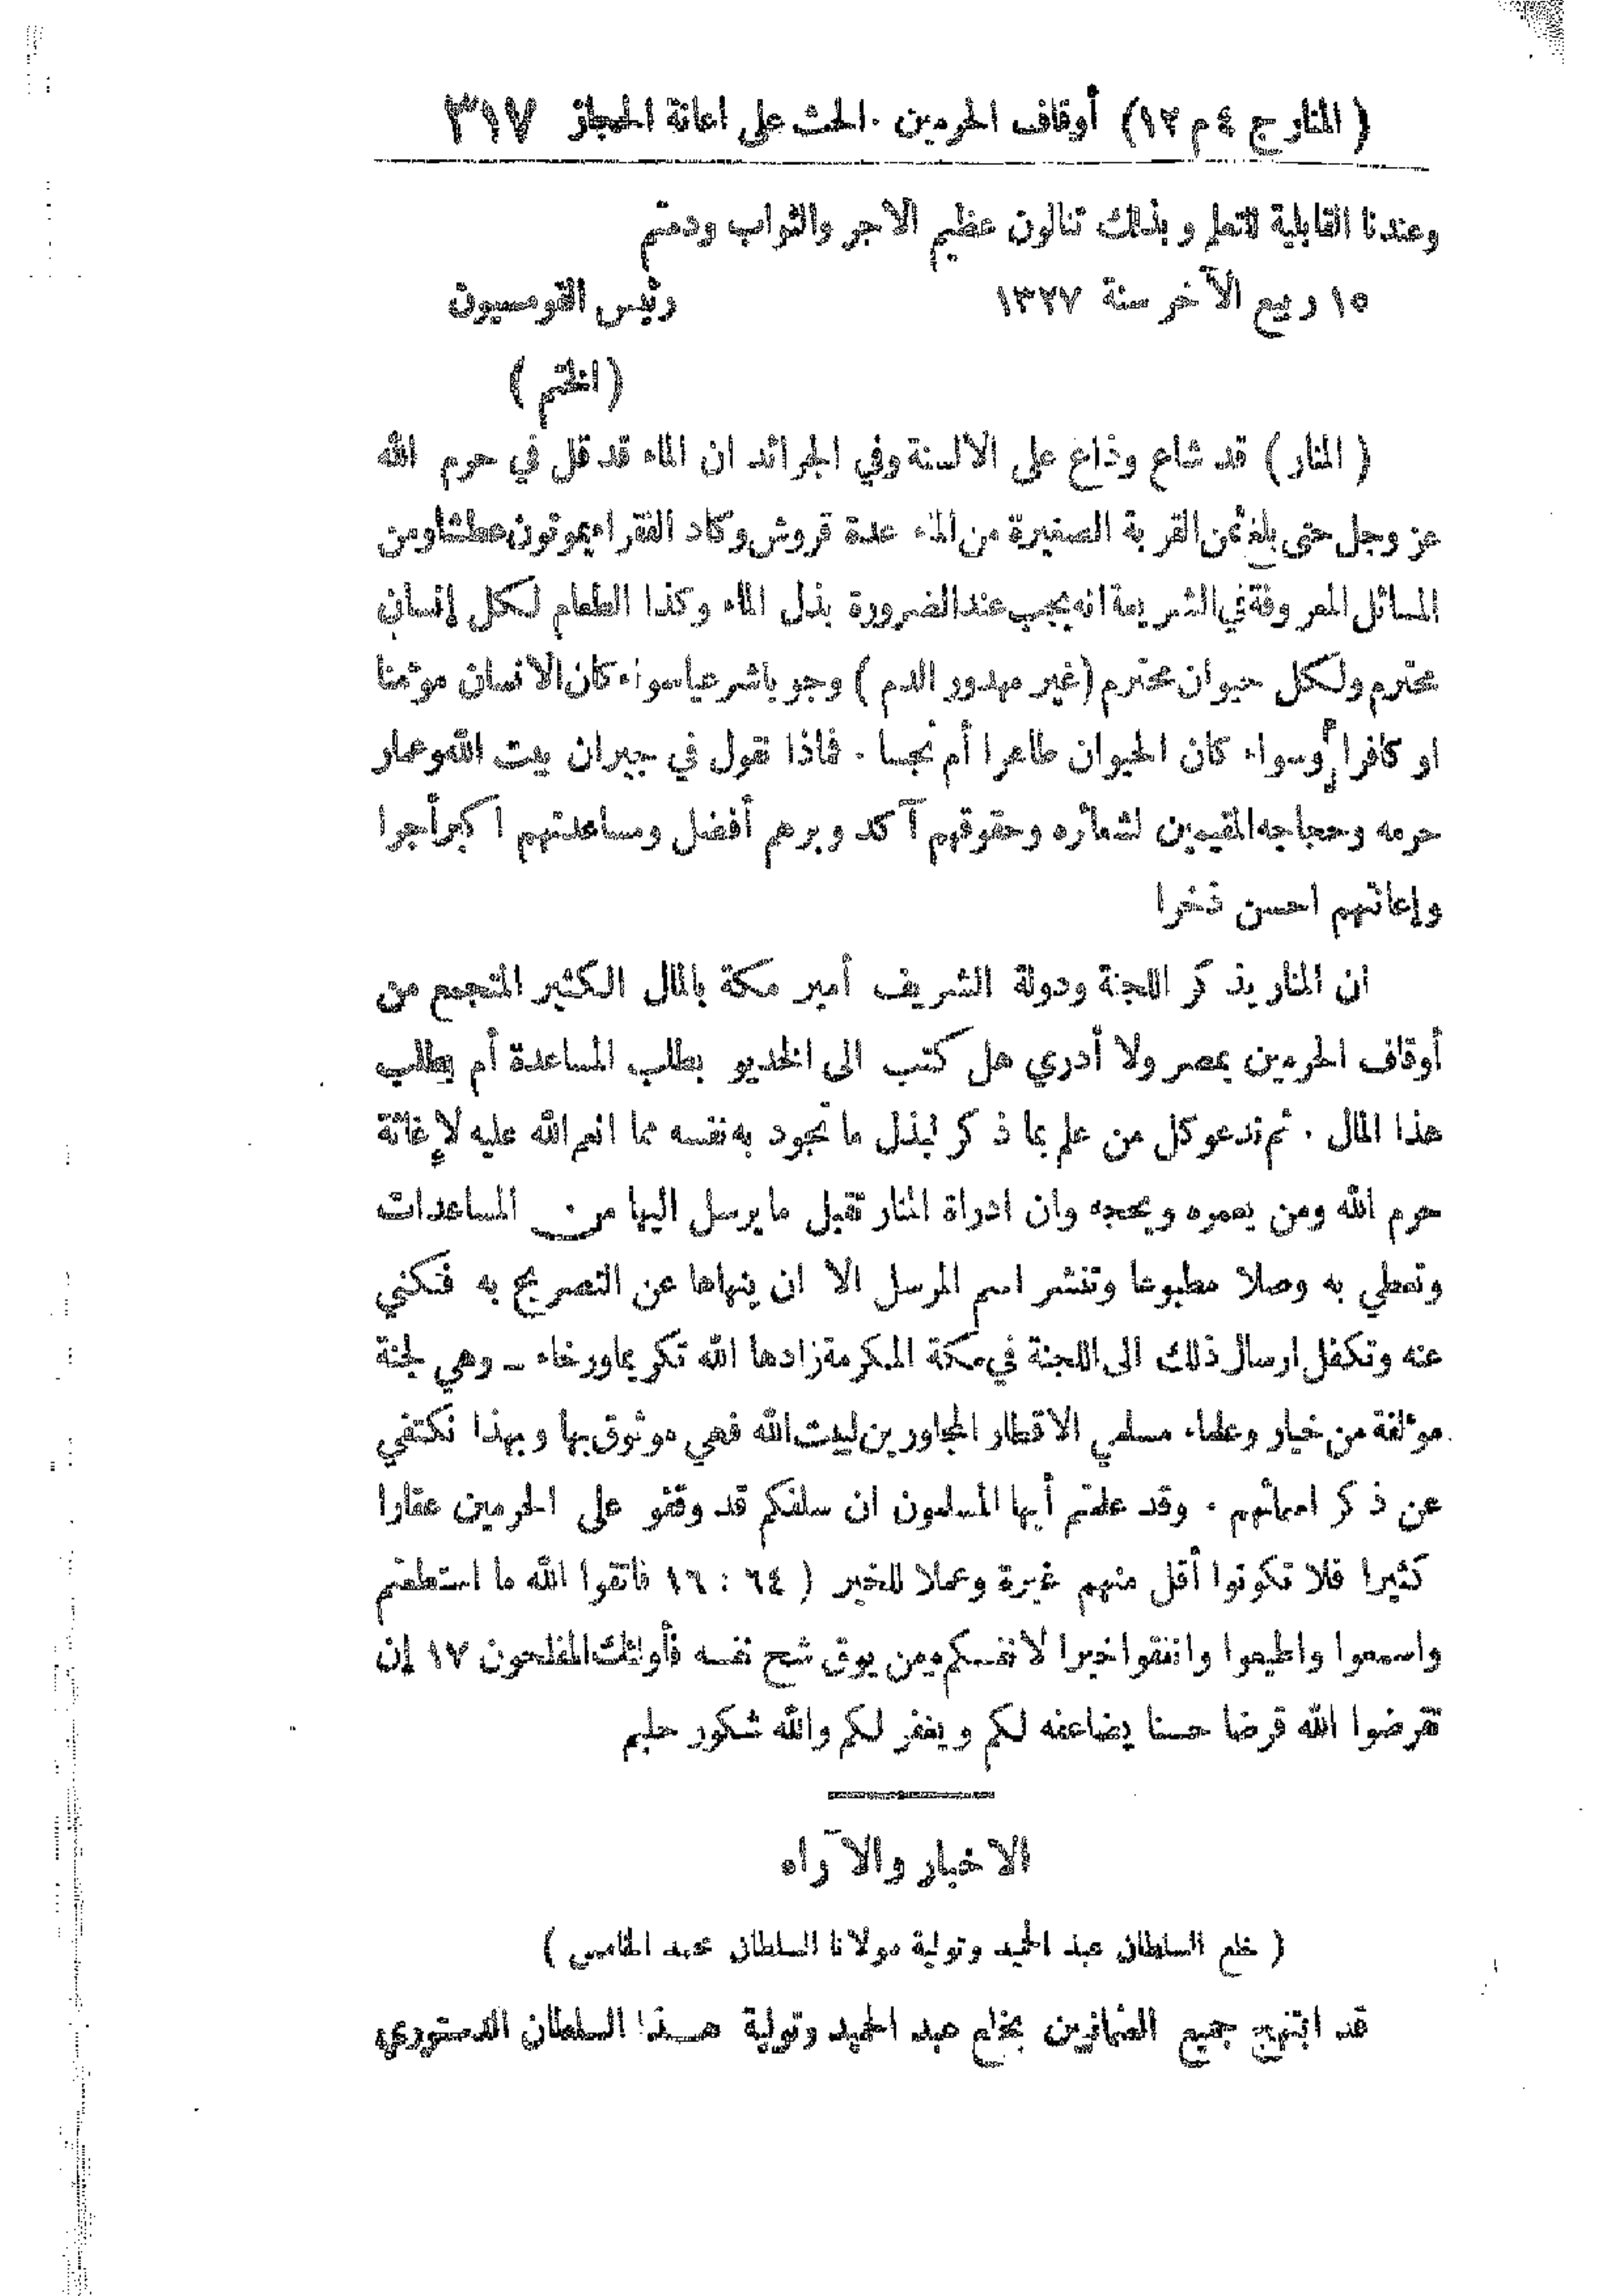 ( المنار ج ٤ م ١٢ ) أوقاف الحرمين . الحث على اعانة الحجاز ٣١٧
وعندنا القابلية للتعلم وبذلك تنالون عظيم الاجر والثواب ودمتم
١٥ ربيع الآخر سنة ١٣٢٧ رئيس القومسيون
( الختم )
( المنار ) قد شاع وذاع على الالسنة وفي الجرائد ان الماء قد قل في حرم الله
عز وجل حتى بلغ ثمن القربة الصغيرة من الماء عدة قروش وكاد الفقراء يموتون عطشا ومن
المسائل المعروفة في الشريعة انه يجب عند الضرورة بذل الماء وكذا الطعام لكل إنسان
محترم ولكل حيوان محترم (غير مهدور الدم ) وجوبا شرعيا سواء كان الانسان مؤمنا
او كافرا وسواء كان الحيوان طاهرا أم نجسا . فماذا نقول في جيران بيت الله وعمار
حرمه وحجاجه المقيمين لشعائره وحقوقهم آكد وبرهم أفضل ومساعدتهم اكبر أجرا
وإعانتهم احسن ذخرا
ان المنار يذكر اللجنة ودولة الشريف أمير مكة بالمال الكثير المتجمع من
أوقاف الحرمين بمصر ولا أدري هل كتب الى الخديو بطلب المساعدة أم بطلب
هذا المال . ثم ندعو كل من علم بما ذكر لبذل ما تجود به نفسه مما انعم الله عليه لإغاثة
حرم الله ومن يعمره ويحجه وان ادراة المنار تقبل ما يرسل اليها من المساعدات
وتعطي به وصلا مطبوعا وتنشر اسم المرسل الا ان ينهاها عن التصريح به فتكني
عنه وتكفل ارسال ذلك الى اللجنة في مكة المكرمة زادها الله تكريما ورخاء ـ وهي لجنة
مؤلفة من خيار وعلماء مسلمي الاقطار المجاورين لبيت الله فهي موثوق بها وبهذا نكتفي
عن ذكر اسمائهم . وقد علمتم أيها المسلمون ان سلفكم قد وقفو على الحرمين عقارا
كثيرا فلا تكونوا أقل منهم غيرة وعملا للخير ( ٦٤ : ١٦ فاتقوا الله ما استطعتم
واسمعوا واطيعوا وانفقوا خيرا لانفسكم ومن يوق شح نفسه فأولئك المفلحون ١٧ إن
تقرضوا الله قرضا حسنا يضاعفه لكم ويغفر لكم والله شكور حليم
الاخبار والآراء
( خلع السلطان عبد الحميد وتولية مولانا السلطان محمد الخامس )
قد ابتهج جميع العثمانيين بخلع عبد الحميد وتولية هذا السلطان الدستوري